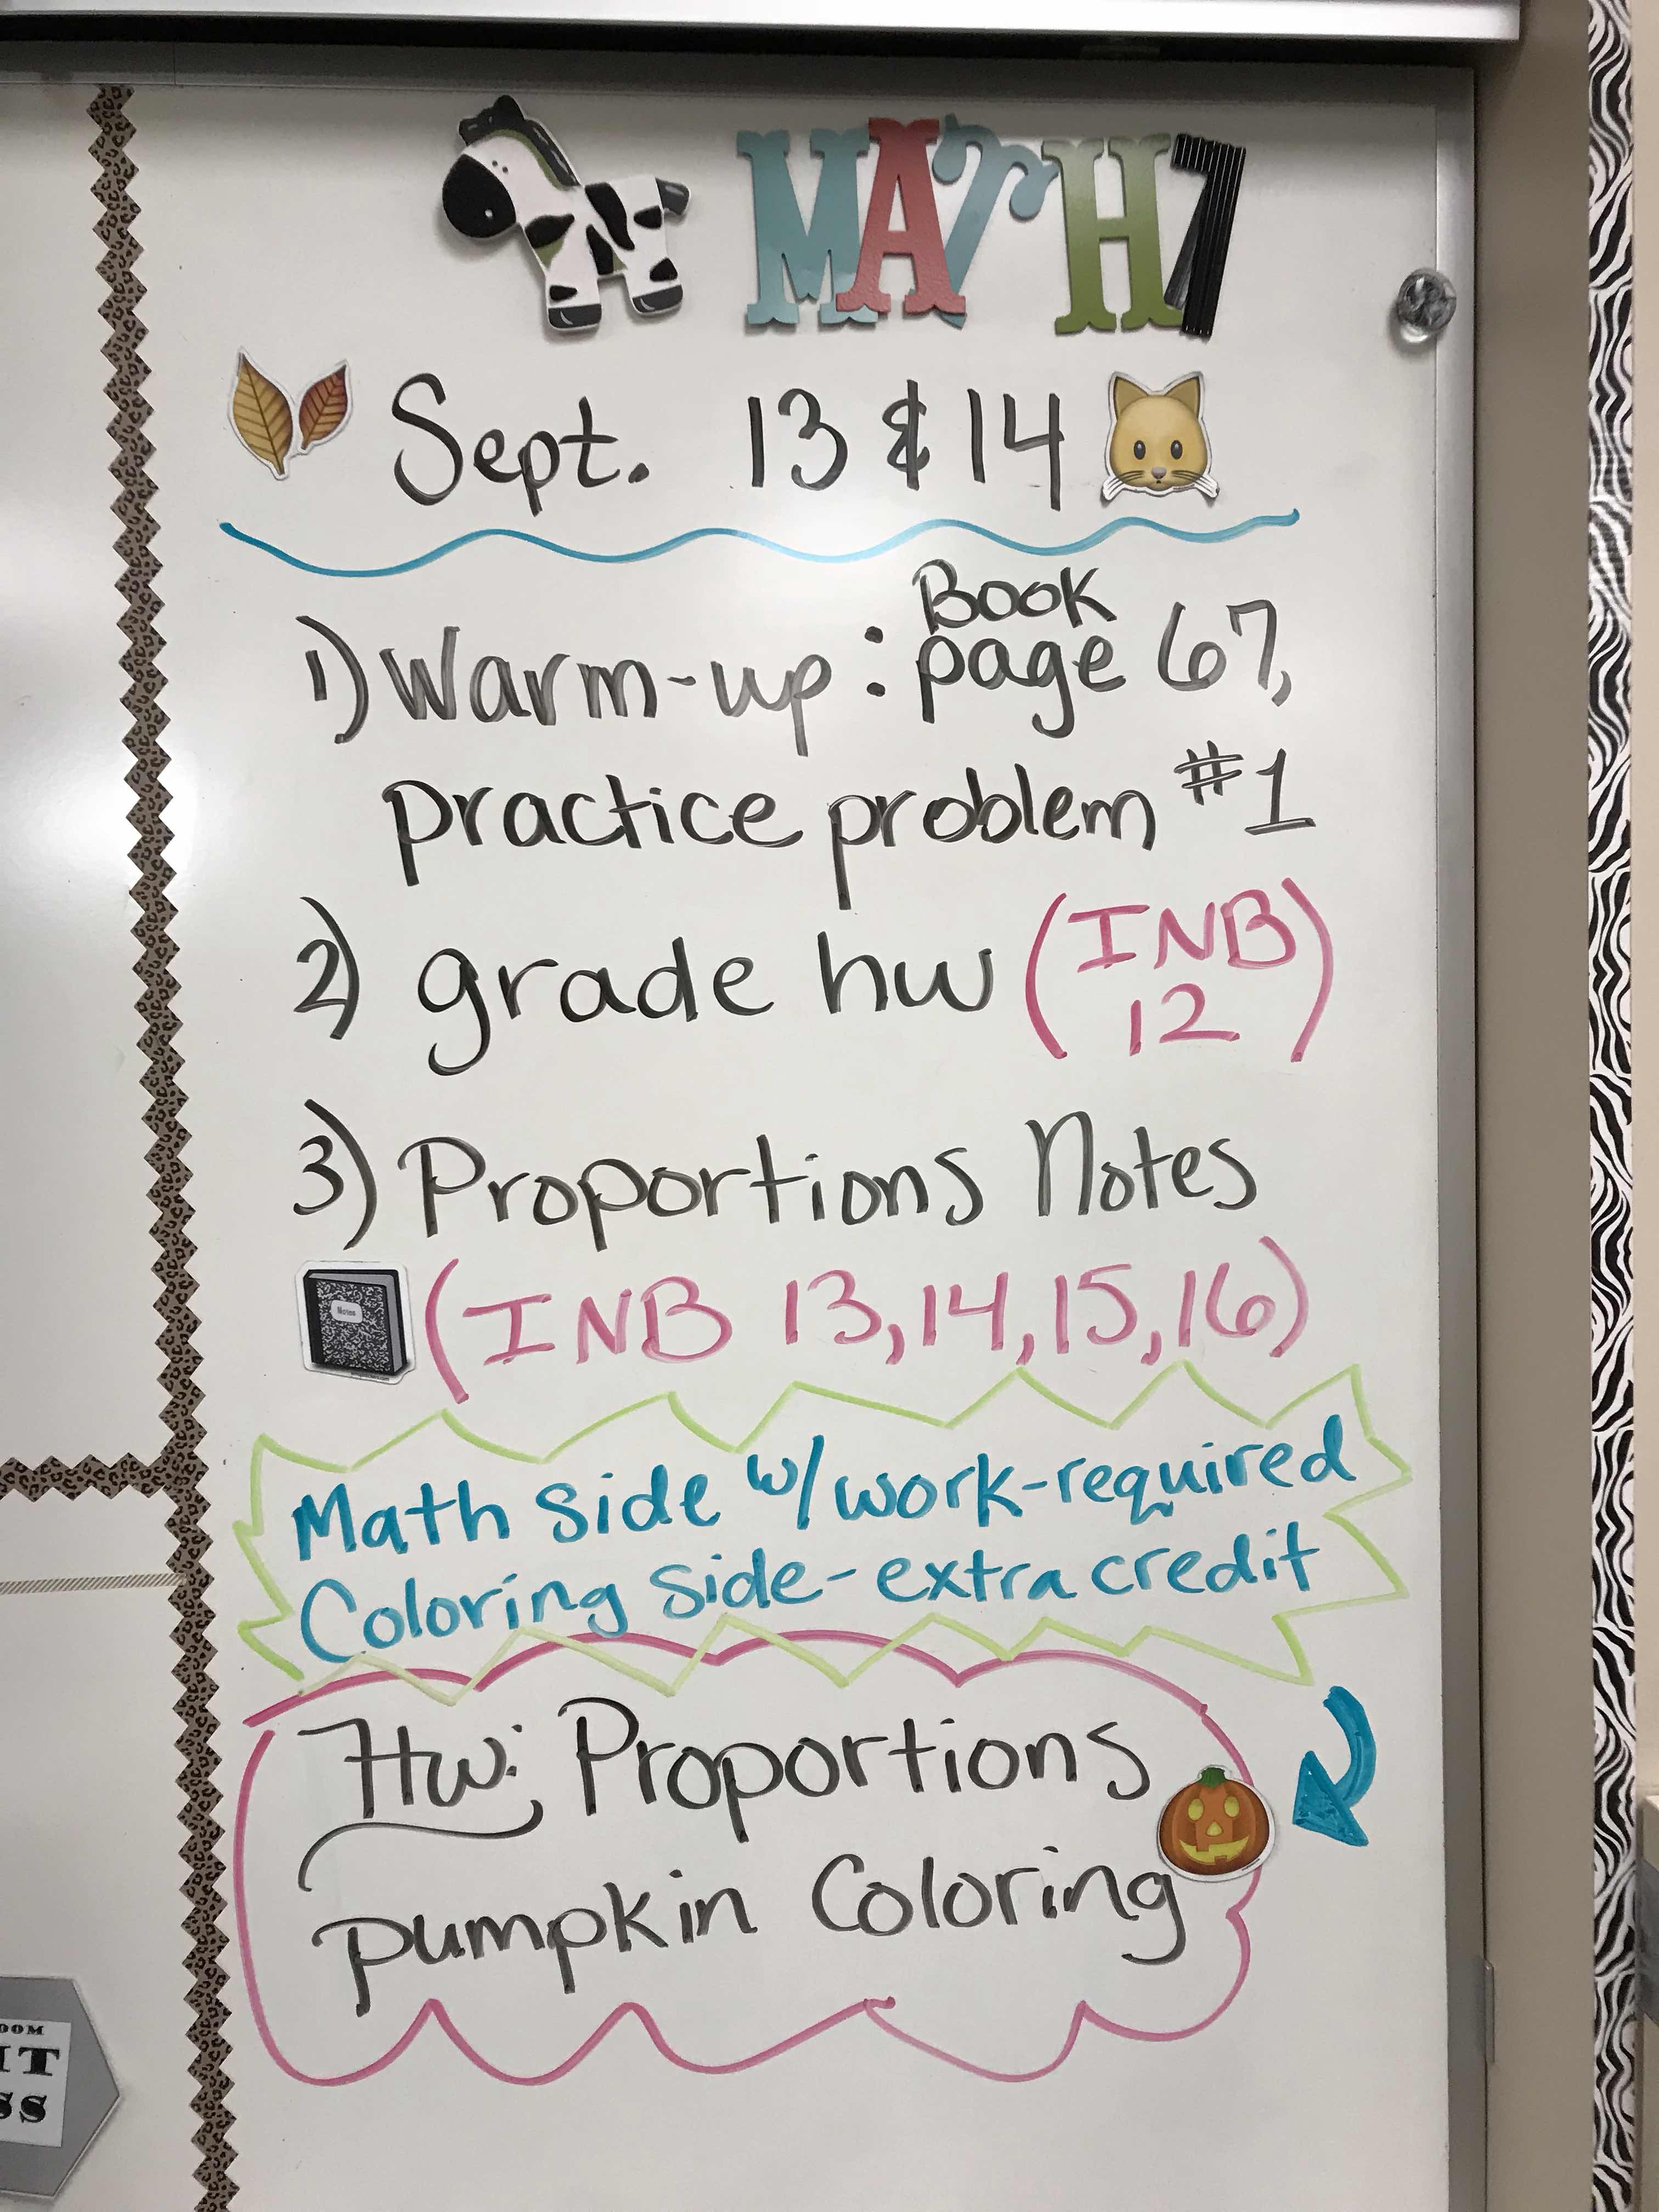 MATH 7
Sept. 13 & 14
1) Warm-up: Book page 67,
practice problem #1
2) grade hw (INB
12)
3) Proportions Notes
Notes
(INB 13, 14, 15, 16)
Math side w/ work-required
Coloring side-extra credit
Hw: Proportions
pumpkin Coloring
OOM
IT
SS